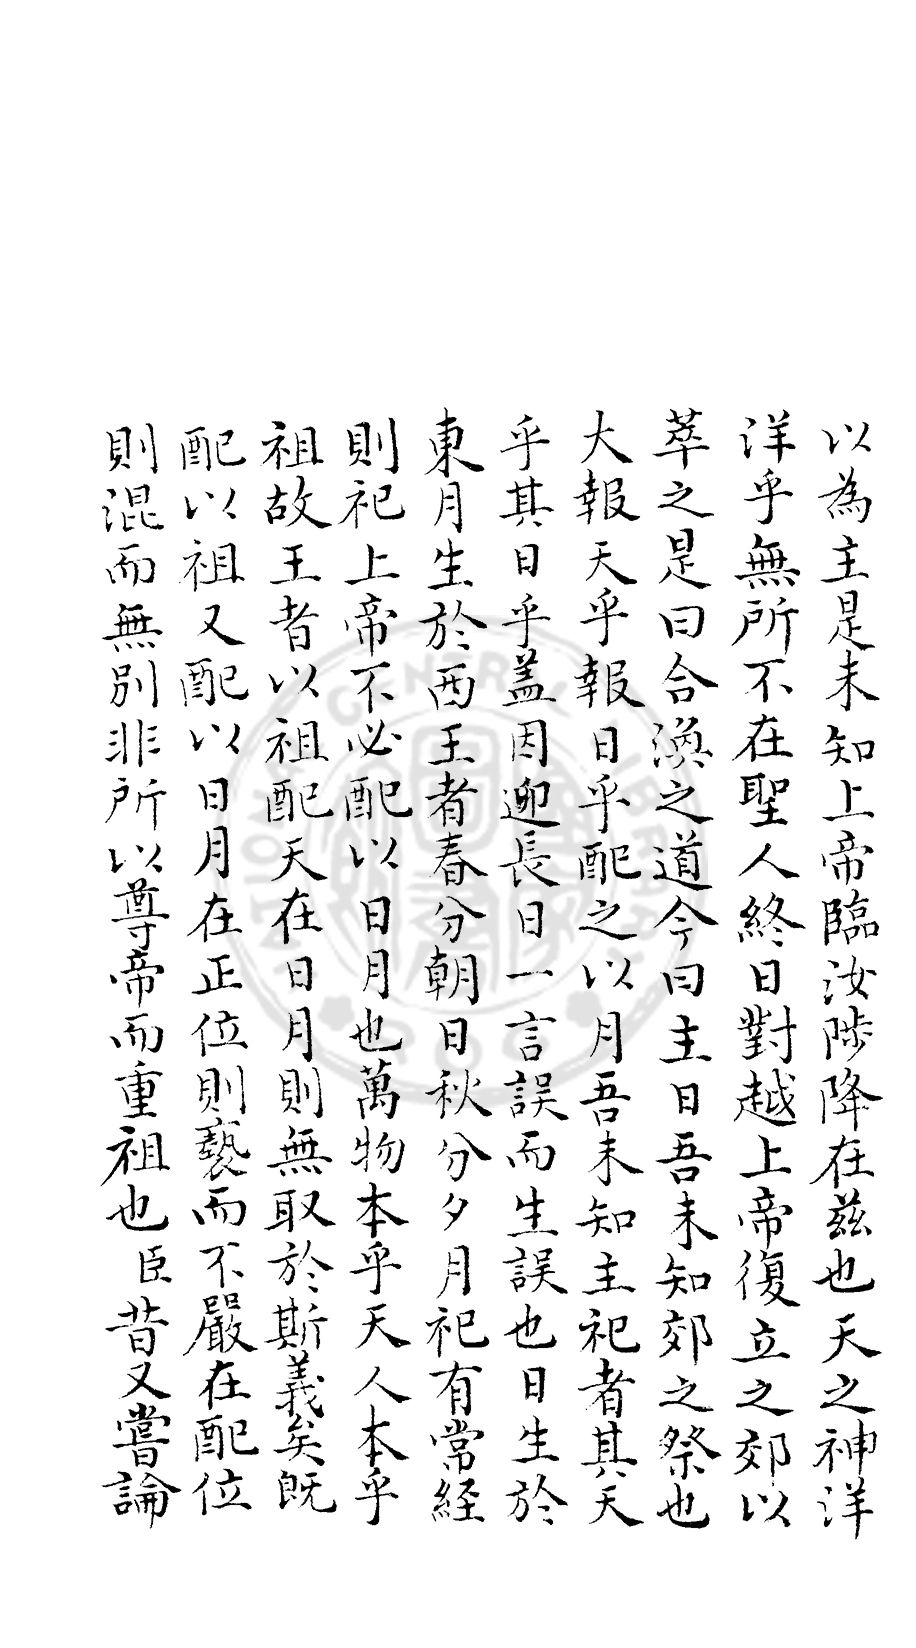 以為主是未知上帝臨汝陟降在茲也天之神洋
洋乎無所不在聖人終日對越上帝復立之郊以
萃之是曰合渙之道今曰主日吾未知郊之祭也
大報天乎報日乎配之以月吾未知主祀者其天
乎其日乎蓋因迎長日一言誤而生誤也日生於
東月生於西王者春分朝日秋分夕月祀有常経
則祀上帝不必配以日月也萬物本乎天人本乎
祖故王者以祖配天在日月則無取於斯義矣既
配以祖又配以日月在正位則褻而不嚴在配位
則混而無別非所以尊帝而重祖也臣昔又嘗論